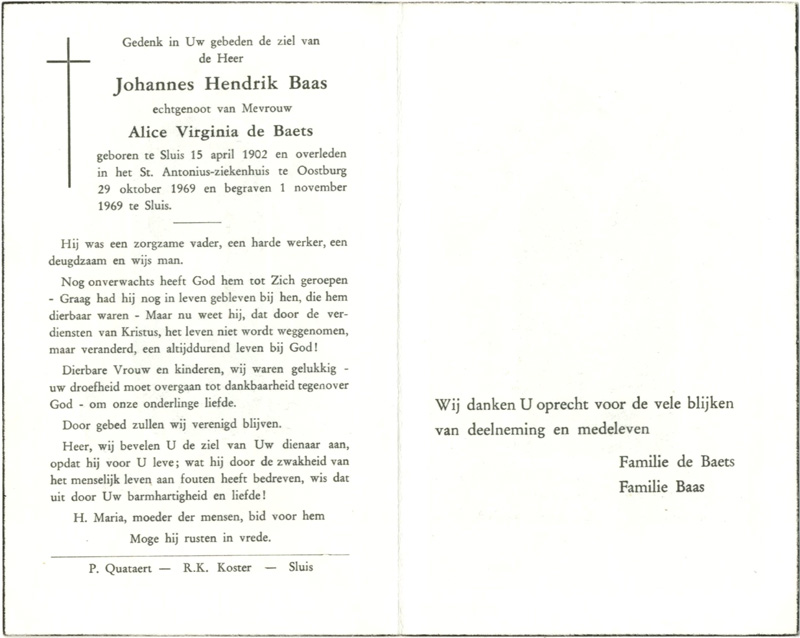 Gedenk in Uw gebeden de ziel van
de Heer
Johannes Hendrik Baas
echtgenoot van Mevrouw
Alice Virginia de Baets
geboren te Sluis 15 april 1902 en overleden
in het St. Antonius-ziekenhuis te Oostburg
29 oktober 1969 en begraven 1 november
1969 te Sluis.
Hij was een zorgzame vader, een harde werker, een
deugdzaam en wijs man.
Nog onverwachts heeft God hem tot Zich geroepen
- Graag had hij nog in leven gebleven bij hen, die hem
dierbaar waren - Maar nu weet hij, dat door de ver-
diensten van Kristus, het leven niet wordt weggenomen,
maar veranderd, een altijddurend leven bij God!
Dierbare Vrouw en kinderen, wij waren gelukkig -
uw droefheid moet overgaan tot dankbaarheid tegenover
God - om onze onderlinge liefde.
Door gebed zullen wij verenigd blijven.
Heer, wij bevelen U de ziel van Uw dienaar aan,
opdat hij voor U leve; wat hij door de zwakheid van
het menselijk leven aan fouten heeft bedreven, wis dat
uit door Uw barmhartigheid en liefde!
H. Maria, moeder der mensen, bid voor hem
Moge hij rusten in vrede.
P. Quataert — R.K. Koster — Sluis
Wij danken U oprecht voor de vele blijken
van deelneming en medeleven
Familie de Baets
Familie Baas